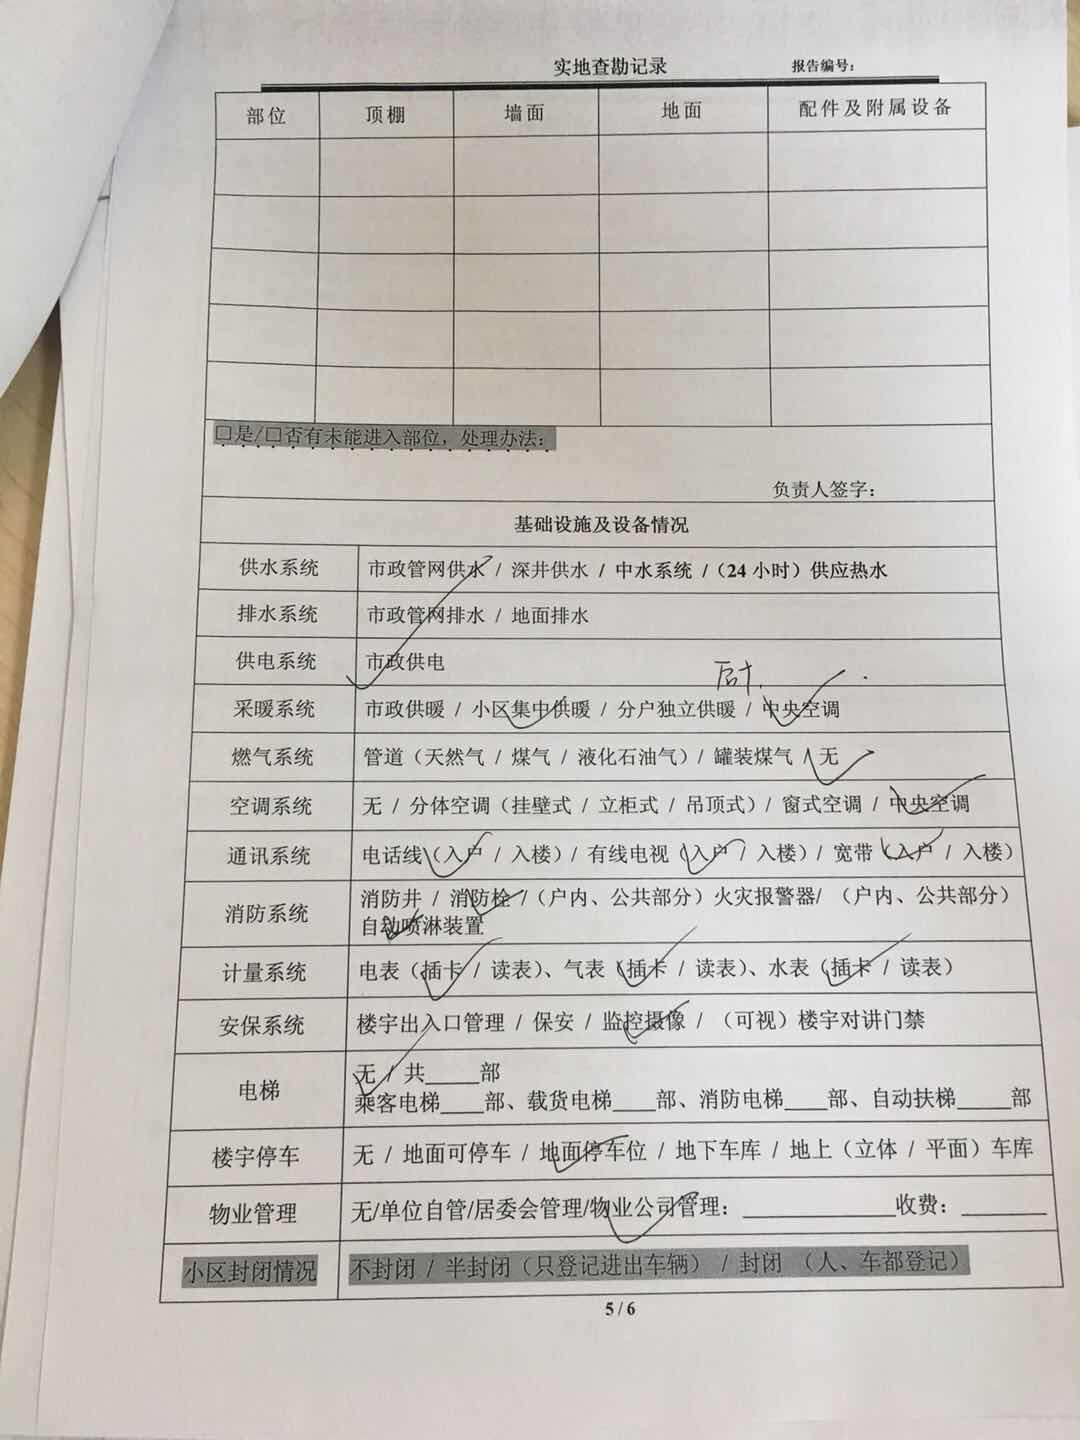 实地查勘记录 报告编号：
部位 顶棚 墙面 地面 配件及附属设备
□是/□否有未能进入部位，处理办法：
负责人签字：
基础设施及设备情况
供水系统 市政管网供水 / 深井供水 / 中水系统 /（24 小时）供应热水
排水系统 市政管网排水 / 地面排水
供电系统 市政供电
采暖系统 市政供暖 / 小区集中供暖 / 分户独立供暖 / 中央空调
燃气系统 管道（天然气 / 煤气 / 液化石油气）/ 罐装煤气 / 无
空调系统 无 / 分体空调（挂壁式 / 立柜式 / 吊顶式）/ 窗式空调 / 中央空调
通讯系统 电话线（入户 / 入楼）/ 有线电视（入户 / 入楼）/ 宽带（入户 / 入楼）
消防系统 消防井 / 消防栓 /（户内、公共部分）火灾报警器/ （户内、公共部分）
自动喷淋装置
计量系统 电表（插卡 / 读表）、气表（插卡 / 读表）、水表（插卡 / 读表）
安保系统 楼宇出入口管理 / 保安 / 监控摄像 / （可视）楼宇对讲门禁
电梯 无 / 共_____部
乘客电梯____部、载货电梯____部、消防电梯____部、自动扶梯_____部
楼宇停车 无 / 地面可停车 / 地面停车位 / 地下车库 / 地上（立体 / 平面）车库
物业管理 无/单位自管/居委会管理/物业公司管理：______________收费：________
小区封闭情况 不封闭 / 半封闭（只登记进出车辆） / 封闭 （人、车都登记）
5 / 6